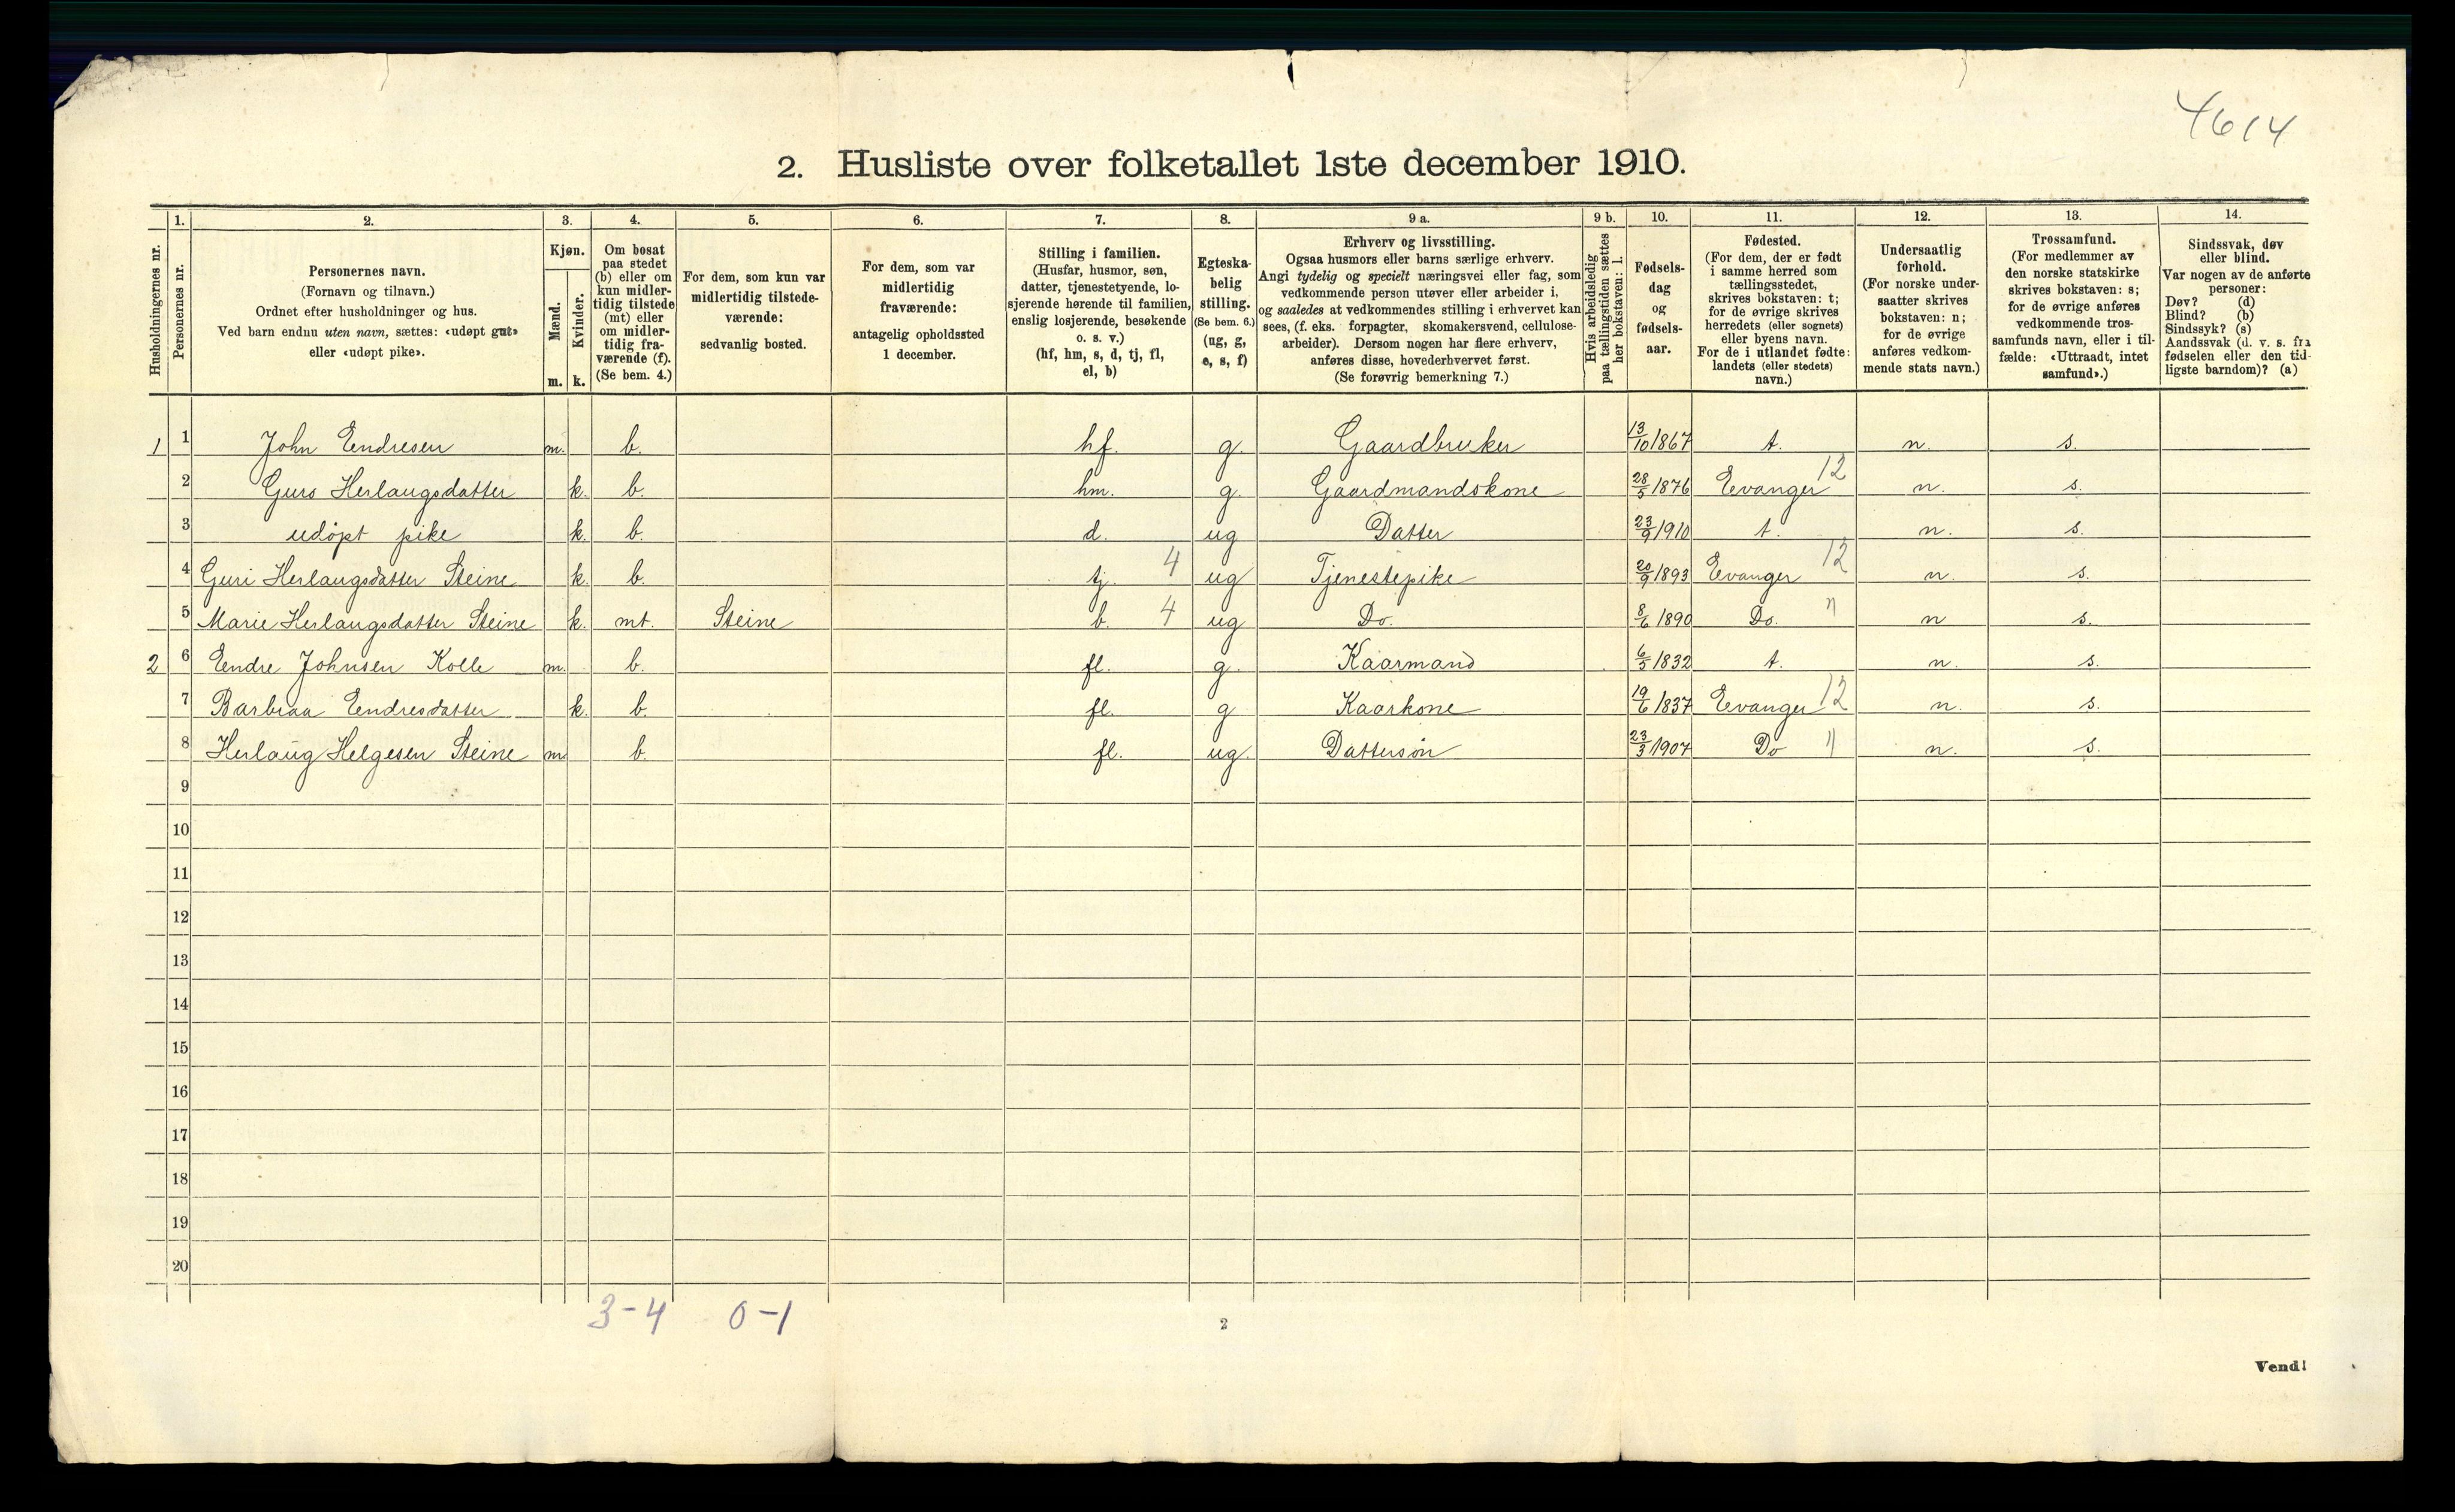 4614
2. Husliste over folketallet 1ste december 1910.
Husholdningernes nr.
1.
Personernes nr.
2.
Personernes navn.
(Fornavn og tilnavn.)
Ordnet efter husholdninger og hus.
Ved barn endnu uten navn, sættes: «udøpt gut»
eller «udøpt pike».
3.
Kjøn.
Mænd.
m.
Kvinder.
k.
4.
Om bosat
paa stedet
(b) eller om
kun midler-
tidig tilstede
(mt) eller
om midler-
tidig fra-
værende (f).
(Se bem. 4.)
5.
For dem, som kun var
midlertidig tilstede-
værende:
sedvanlig bosted.
6.
For dem, som var
midlertidig
fraværende:
antagelig opholdssted
1 december.
7.
Stilling i familien.
(Husfar, husmor, søn,
datter, tjenestetyende, lo-
sjerende hørende til familien,
enslig losjerende, besøkende
o. s. v.)
(hf, hm, s, d, tj, fl,
el, b)
8.
Egteska-
belig
stilling.
(Se bem. 6.)
(ug, g,
e, s, f)
9 a.
Erhverv og livsstilling.
Ogsaa husmors eller barns særlige erhverv.
Angi tydelig og specielt næringsvei eller fag, som
vedkommende person utøver eller arbeider i,
og saaledes at vedkommendes stilling i erhvervet kan
sees, (f. eks. forpagter, skomakersvend, cellulose-
arbeider). Dersom nogen har flere erhverv,
anføres disse, hovederhvervet først.
(Se forøvrig bemerkning 7.)
9 b.
Hvis arbeidsledig
paa tællingstiden sættes
her bokstaven: l.
10.
Fødsels-
dag
og
fødsels-
aar.
11.
Fødested.
(For dem, der er født
i samme herred som
tællingsstedet,
skrives bokstaven: t;
for de øvrige skrives
herredets (eller sognets)
eller byens navn.
For de i utlandet fødte:
landets (eller stedets)
navn.)
12.
Undersaatlig
forhold.
(For norske under-
saatter skrives
bokstaven: n;
for de øvrige
anføres vedkom-
mende stats navn.)
13.
Trossamfund.
(For medlemmer av
den norske statskirke
skrives bokstaven: s;
for de øvrige anføres
vedkommende tros-
samfunds navn, eller i til-
fælde: «Uttraadt, intet
samfund».)
14.
Sindssvak, døv
eller blind.
Var nogen av de anførte
personer:
Døv? (d)
Blind? (b)
Sindssyk? (s)
Aandssvak (d. v. s. fra
fødselen eller den tid-
ligste barndom)? (a)
1 1 John Endresen m. b. hf. g. Gaardbruker 13/10 1867 t. n. s.
2 Guro Herlaugsdatter k. b. hm. g. Gaardmandskone 28/5 1876 Evanger 12 n. s.
3 udøpt pike k. b. d. ug Datter 23/9 1910 t. n. s.
4 Guri Herlaugsdatter Steine k. b. tj. 4 ug Tjenestepike 20/9 1893 Evanger 12 n. s.
5 Marie Herlaugsdatter Steine k. mt. Steine b. 4 ug Do. 8/6 1890 Do. " n s.
2 6 Endre Johnsen Kolle m. b. fl. g. Kaarmand 6/5 1832 t. n. s.
7 Barbraa Endresdatter k. b. fl. g Kaarkone 19/6 1837 Evanger 12 n. s.
8 Herlaug Helgesen Steine m. b. fl. ug. Dattersøn 23/3 1907 Do " n. s.
9
10
11
12
13
14
15
16
17
18
19
20
3-4 0-1
2
Vend!